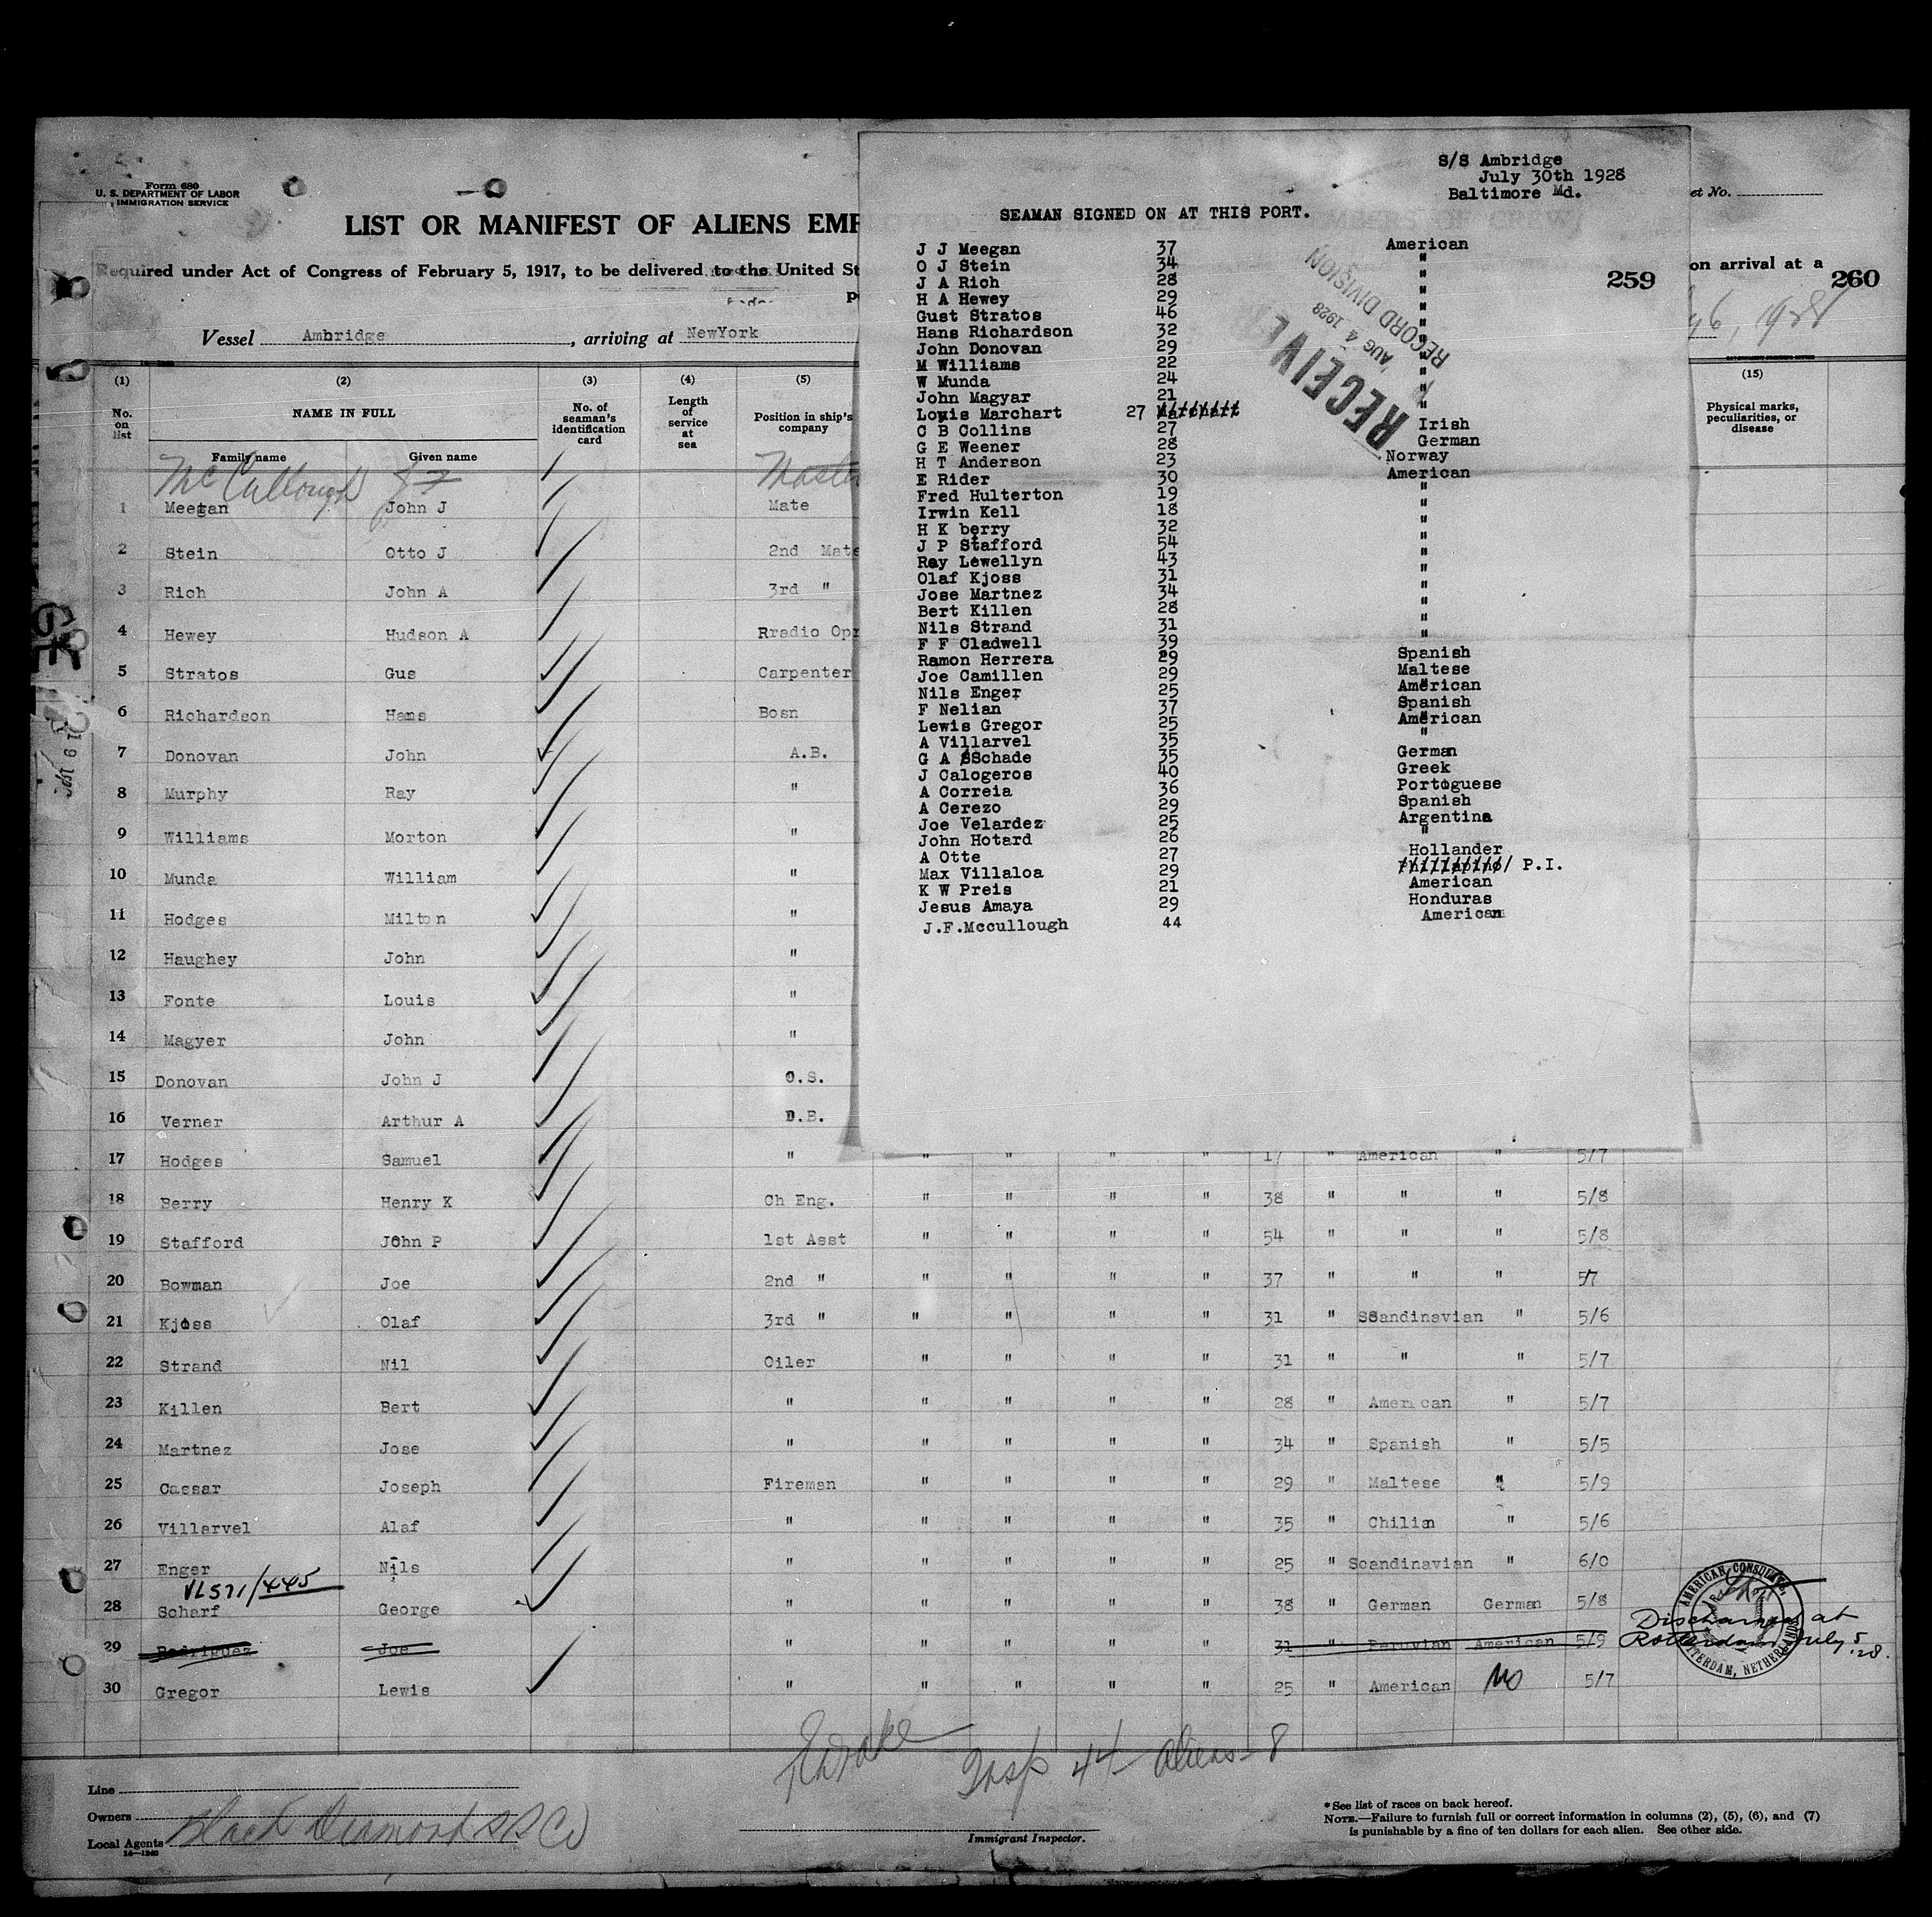 Form 680
U. S. DEPARTMENT OF LABOR
IMMIGRATION SERVICE
LIST OR MANIFEST OF ALIENS EMP
Required under Act of Congress of February 5, 1917, to be delivered to the United St
Vessel Ambridge, arriving at NewYork
et No.
on arrival at a 260
S/S Ambridge
July 30th 1928
Baltimore Md.
SEAMAN SIGNED ON AT THIS PORT.
259
RECORD DIVISION
AUG 4 1928
J J Meegan 37 American
O J Stein 34 "
J A Rich 28 "
H A Hewey 29 "
Gust Stratos 46 "
Hans Richardson 32 "
John Donovan 29 "
M Williams 22 "
W Munda 24 "
John Magyar 21 "
Louis Marchart 27 Marchart "
C B Collins 27 Irish
G E Weener 28 German
H T Anderson 23 Norway
E Rider 30 American
Fred Hulterton 19 "
Irwin Kell 18 "
H K berry 32 "
J P Stafford 54 "
Ray Lewellyn 43 "
Olaf Kjoss 31 "
Jose Martnez 34 "
Bert Killen 28 "
Nils Strand 31 "
F F Cladwell 39 "
Ramon Herrera 29 Spanish
Joe Camillen 29 Maltese
Nils Enger 25 American
F Nelian 37 Spanish
Lewis Gregor 25 American
A Villarvel 35 "
G A SSchade 35 German
J Calogeros 40 Greek
A Correia 36 Portoguese
A Cerezo 29 Spanish
Joe Velardez 25 Argentina
John Hotard 26 "
A Otte 27 Hollander
Max Villaloa 29 P.I.
K W Preis 21 American
Jesus Amaya 29 Honduras
J.F.Mccullough 44 American
(1) (2) (3) (4) (5) (15)
No. on list
NAME IN FULL
Family name Given name
No. of seaman's identification card
Length of service at sea
Position in ship's company
Physical marks, peculiarities, or disease
McCullough J F Maste
1 Meegan John J Mate
2 Stein Otto J 2nd Mate
3 Rich John A 3rd "
4 Hewey Hudson A Rradio Opr
5 Stratos Gus Carpenter
6 Richardson Hams Bosn
7 Donovan John A.B.
8 Murphy Ray "
9 Williams Morton "
10 Munda William "
11 Hodges Milton "
12 Haughey John "
13 Fonte Louis "
14 Magyer John "
15 Donovan John J O.S.
16 Verner Arthur A D.B.
17 Hodges Samuel " " " " " 17 " American " 5/7
18 Berry Henry K Ch Eng. " " " " 38 " " " 5/8
19 Stafford John P 1st Asst " " " " 54 " " " 5/8
20 Bowman Joe 2nd " " " " " 37 " " " 5/7
21 Kjoss Olaf 3rd " " " " " 31 " SSandinavian " 5/6
22 Strand Nil Oiler " " " " 31 " " " 5/7
23 Killen Bert " " " " " 28 " American " 5/7
24 Martnez Jose " " " " " 34 " Spanish " 5/5
25 Cassar Joseph Fireman " " " " 29 " Maltese " 5/9
26 Villarvel Alaf " " " " " 35 " Chilian " 5/6
27 Enger Nils " " " " " 25 " Scandinavian " 6/0
VL571/445
28 Scharf George " " " " " 38 " German German 5/8
29 Rodriguez Joe " " " " " 31 " Peruvian American 5/9 Discharged at Rotterdam July 5 .28.
30 Gregor Lewis " " " " " 25 " American No 5/7
AMERICAN CONSULATE
ROTTERDAM, NETHER
Insp 44 Aliens - 8
Line
Owners
Local Agents Black Diamond SS Co
Immigrant Inspector.
* See list of races on back hereof.
NOTE.—Failure to furnish full or correct information in columns (2), (5), (6), and (7)
is punishable by a fine of ten dollars for each alien. See other side.